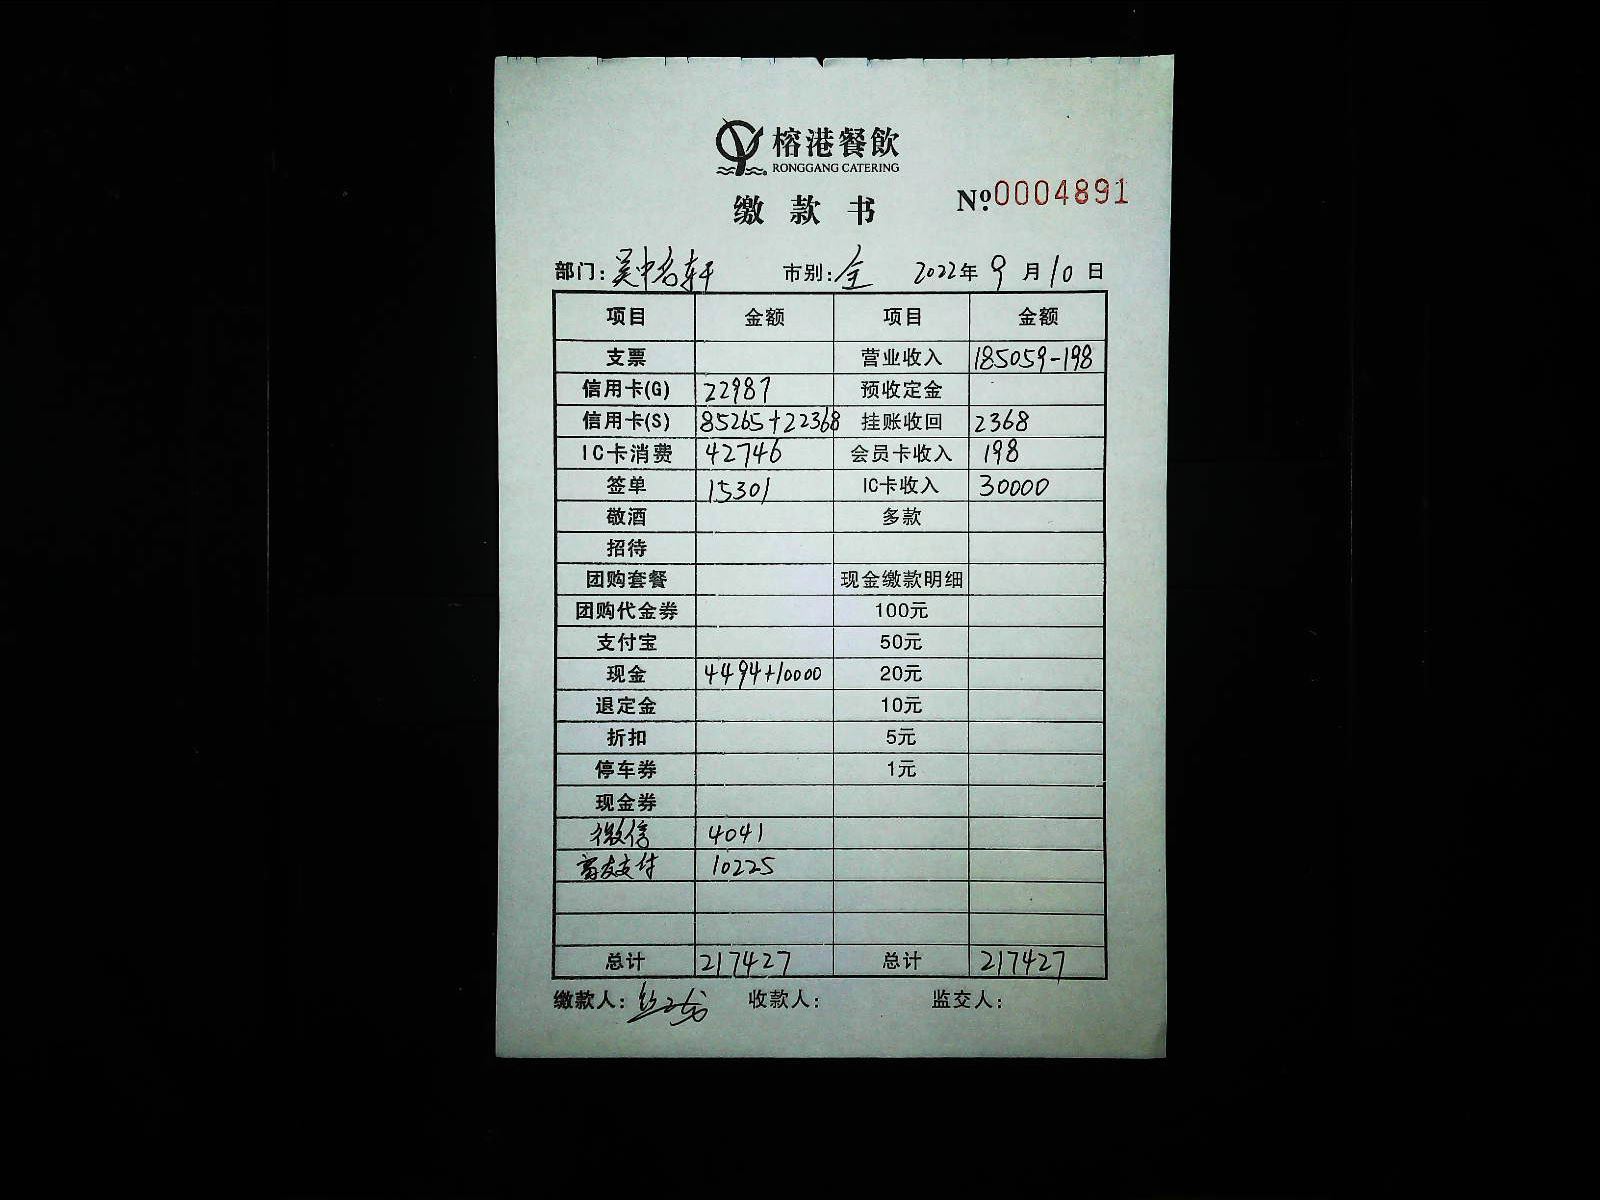 榕港餐飲
RONGGANG CATERING
缴款书
Nº.0004891
部门: 吴中名轩 市别: 全 2022年 9月10日
项目 金额 项目 金额
支票 营业收入 185059-198
信用卡(G) 22987 预收定金
信用卡(S) 85265+22368 挂账收回 2368
IC卡消费 42746 会员卡收入 198
签单 15301 IC卡收入 30000
敬酒 多款
招待
团购套餐 现金缴款明细
团购代金券 100元
支付宝 50元
现金 4494+10000 20元
退定金 10元
折扣 5元
停车券 1元
现金券
微信 4041
富友支付 10225
总计 217427 总计 217427
缴款人: 收款人: 监交人: